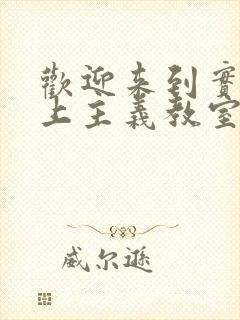 歡迎來到實
上主義教室
威尔遜